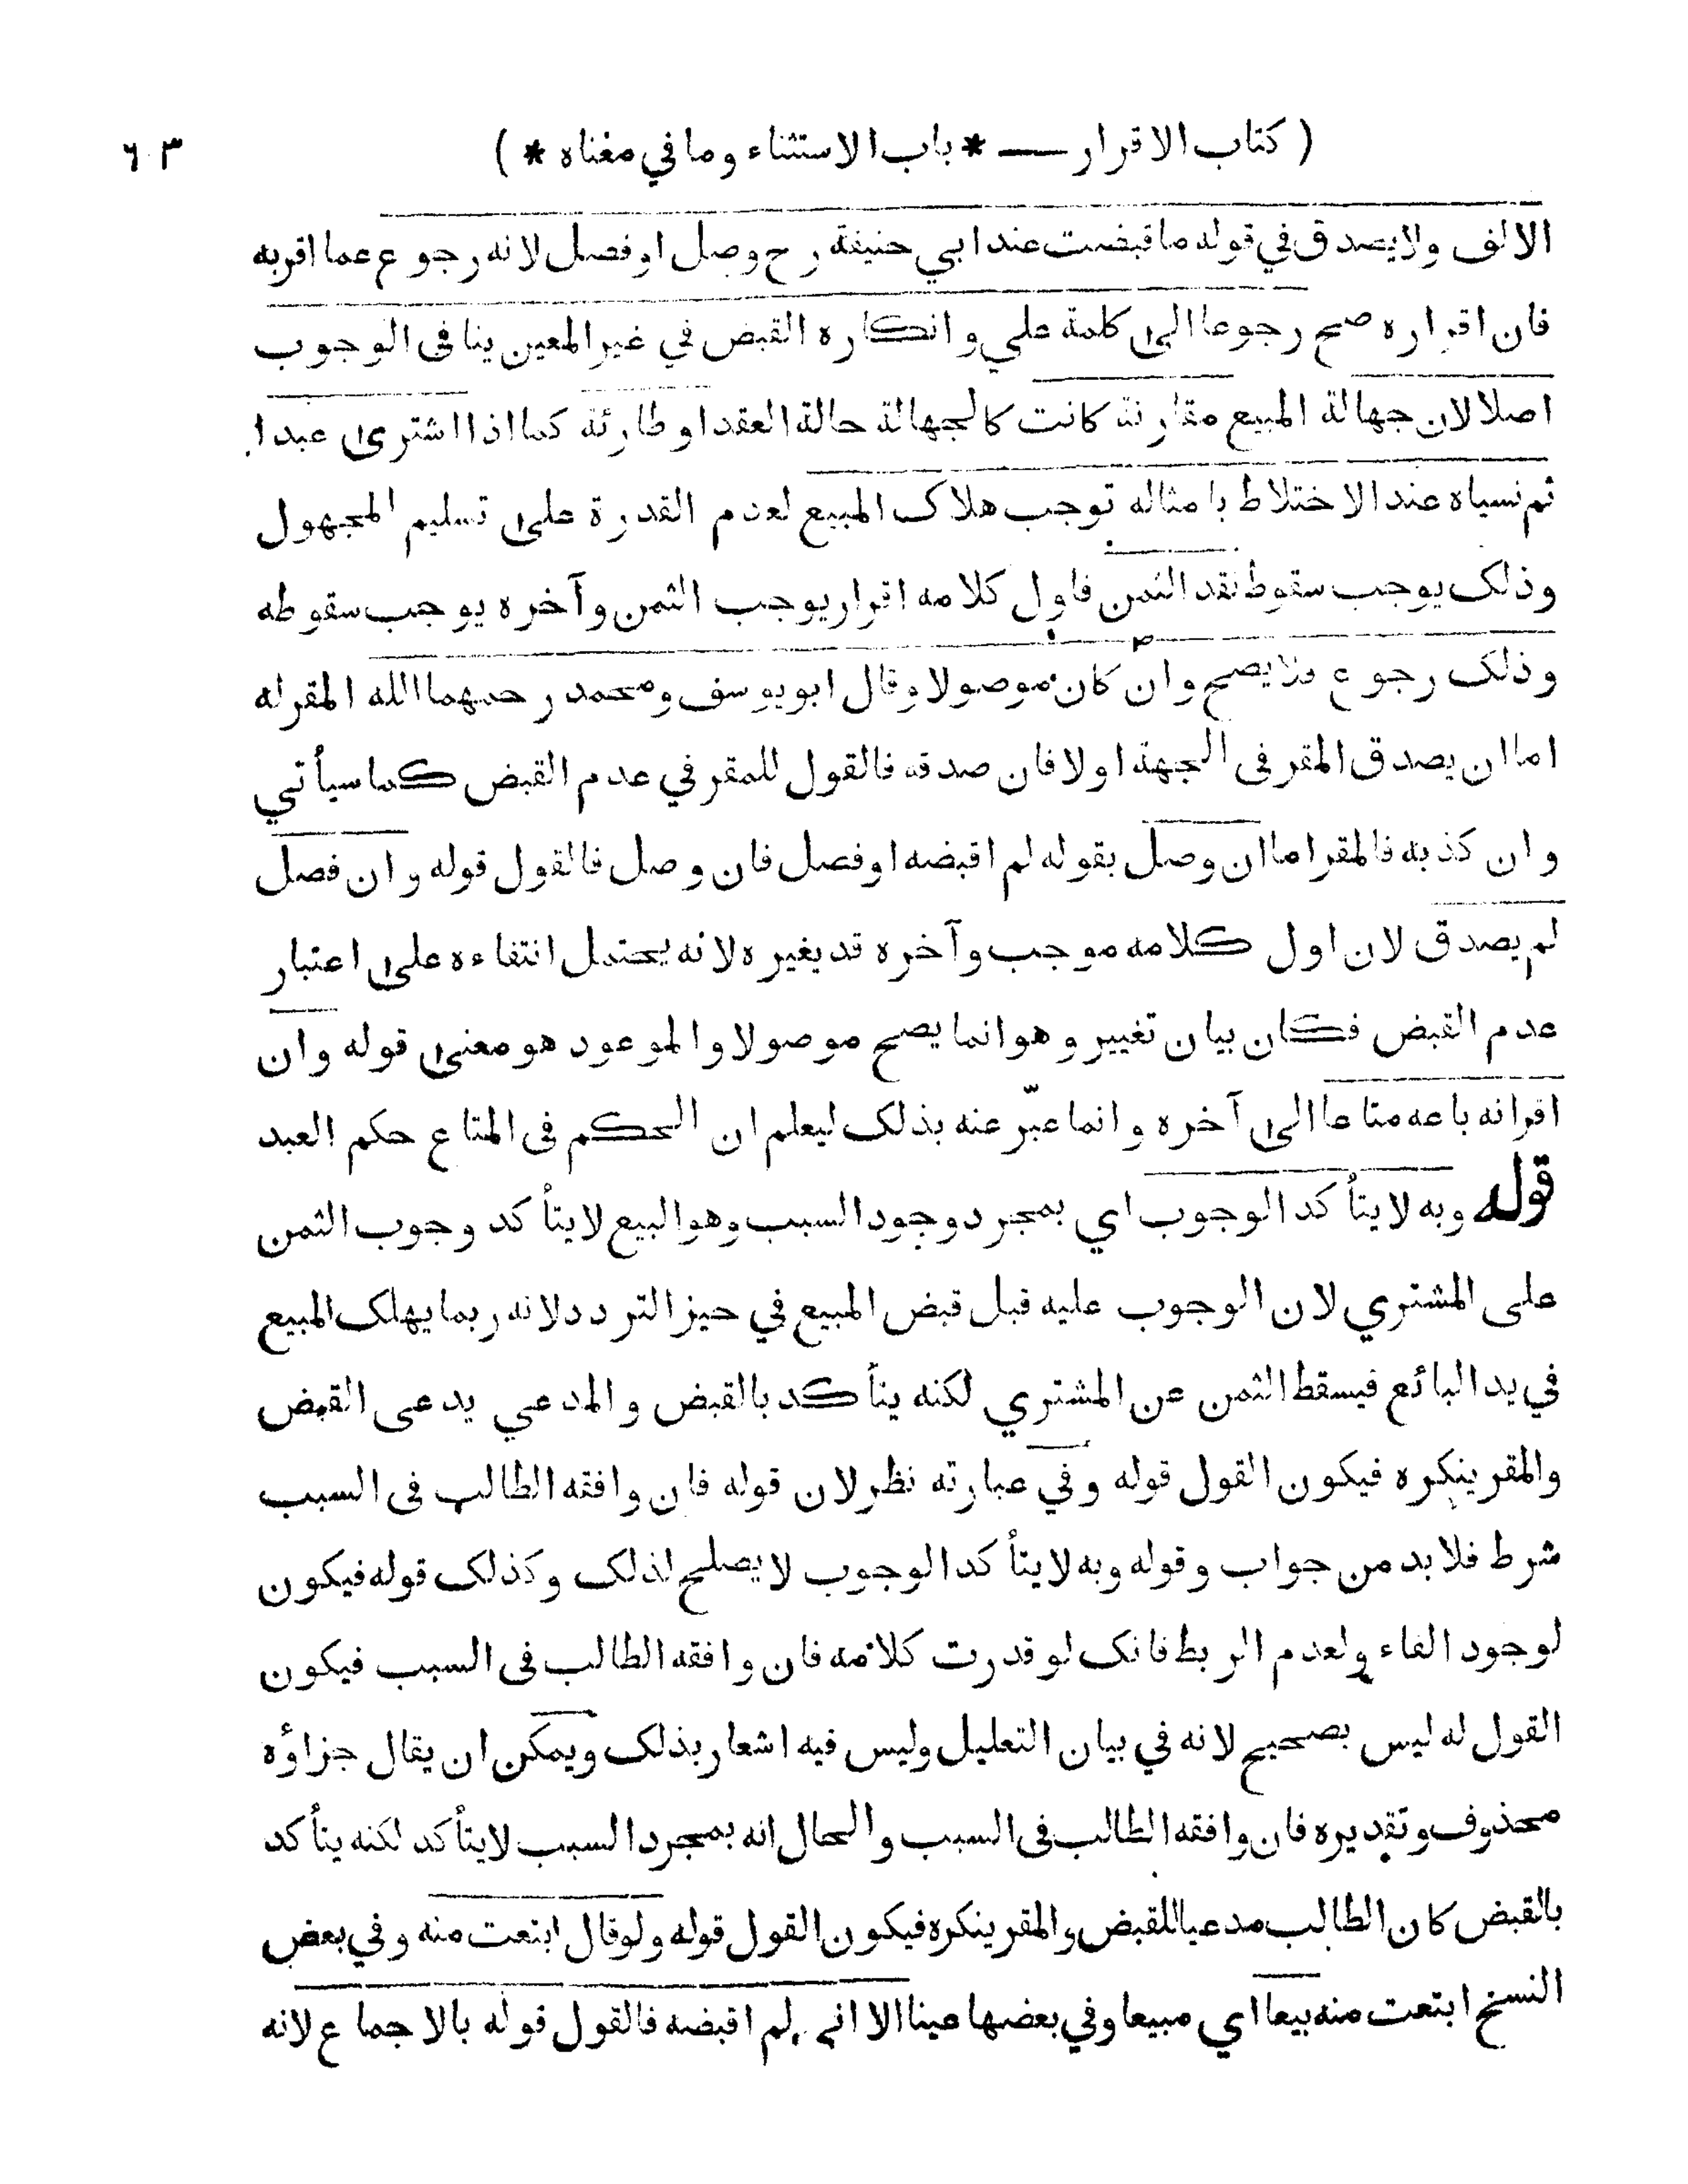 ( كتاب الاقرار — * باب الاستثناء وما في معناه * ) ٦٠٣
الالف ولا يصدق في قوله ما قبضت عند ابي حنيفة رح وصل او فصل لانه رجوع عما اقر به
فان اقراره صح رجوعا الى كلمة علي وانكاره القبض في غير المعين ينافى الوجوب
اصلا لان جهالة المبيع مقارنة كانت كالجهالة حالة العقد او طارئة كما اذا اشترى عبدا
ثم نسياه عند الاختلاط بامثاله توجب هلاك المبيع لعدم القدرة على تسليم المجهول
وذلك يوجب سقوط نقد الثمن فاول كلامه اقرار يوجب الثمن وآخره يوجب سقوطه
وذلك رجوع فلا يصح وان كان موصولا وقال ابو يوسف ومحمد رحمهما الله المقر له
اما ان يصدق المقر فى الجهة اولا فان صدقه فالقول للمقر في عدم القبض كما سيأتي
وان كذبه فالمقر اما ان وصل بقوله لم اقبضه او فصل فان وصل فالقول قوله وان فصل
لم يصدق لان اول كلامه موجب وآخره قد يغيره لانه يحتمل انتفاءه على اعتبار
عدم القبض فكان بيان تغيير وهو انما يصح موصولا والموعود هو معنى قوله وان
اقر انه باعه متاعا الى آخره وانما عبّر عنه بذلك ليعلم ان الحكم فى المتاع حكم العبد
قوله وبه لا يتأكد الوجوب اي بمجرد وجود السبب وهو البيع لا يتأكد وجوب الثمن
على المشتري لان الوجوب عليه قبل قبض المبيع في حيز التردد لانه ربما يهلك المبيع
في يد البائع فيسقط الثمن عن المشتري لكنه يتأكد بالقبض والمدعي يدعى القبض
والمقر ينكره فيكون القول قوله وفي عبارته نظر لان قوله فان وافقه الطالب فى السبب
شرط فلا بد من جواب وقوله وبه لا يتأكد الوجوب لا يصلح لذلك وكذلك قوله فيكون
لوجود الفاء ولعدم الربط فانك لو قدرت كلامه فان وافقه الطالب فى السبب فيكون
القول له ليس بصحيح لانه في بيان التعليل وليس فيه اشعار بذلك ويمكن ان يقال جزاؤه
محذوف وتقديره فان وافقه الطالب فى السبب والحال انه بمجرد السبب لا يتأكد لكنه يتأكد
بالقبض كان الطالب مدعيا للقبض والمقر ينكره فيكون القول قوله ولو قال ابتعت منه وفي بعض
النسخ ابتعت منه بيعا اي مبيعا وفي بعضها عينا الا اني لم اقبضه فالقول قوله بالاجماع لانه